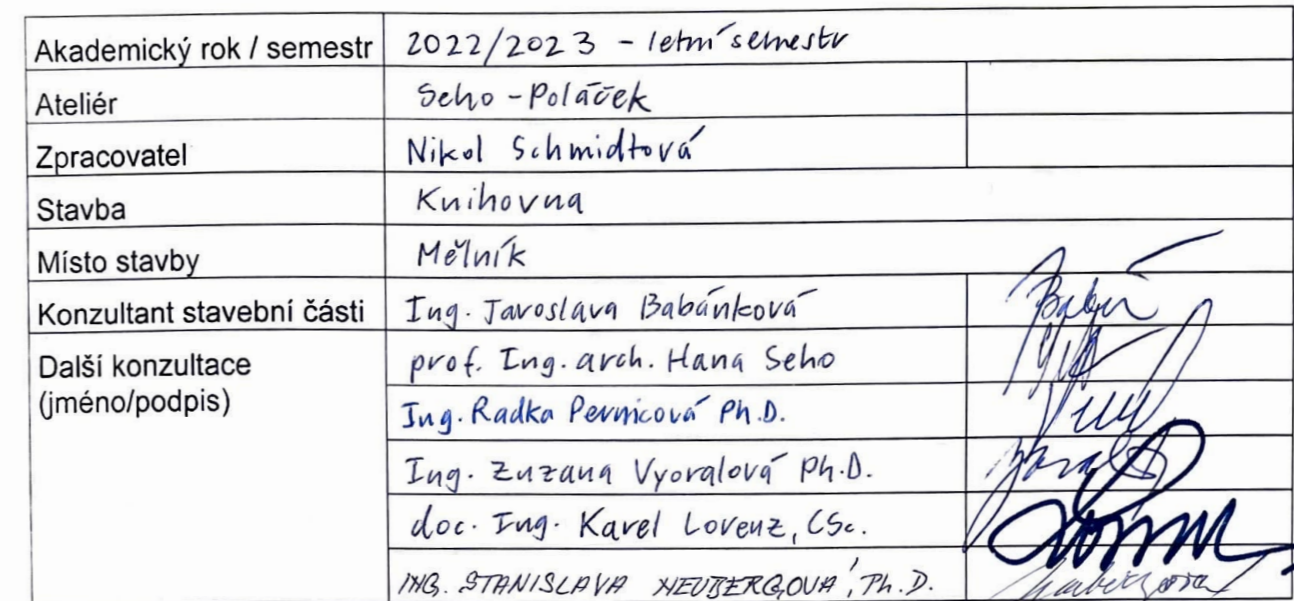 Akademický rok / semestr 2022/2023 - letní semestr
Ateliér Seho - Poláček
Zpracovatel Nikol Schmidtová
Stavba Knihovna
Místo stavby Mělník
Konzultant stavební části Ing. Jaroslava Babánková
Další konzultace prof. Ing. arch. Hana Seho
(jméno/podpis)
Ing. Radka Pernicová Ph.D.
Ing. Zuzana Vyoralová Ph.D.
doc. Ing. Karel Lorenz, CSc.
ING. STANISLAVA NEUBERGOVÁ, Ph.D.